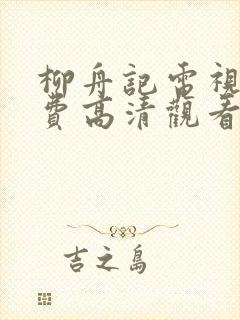 柳舟記電視
費高清觀看
吉之島